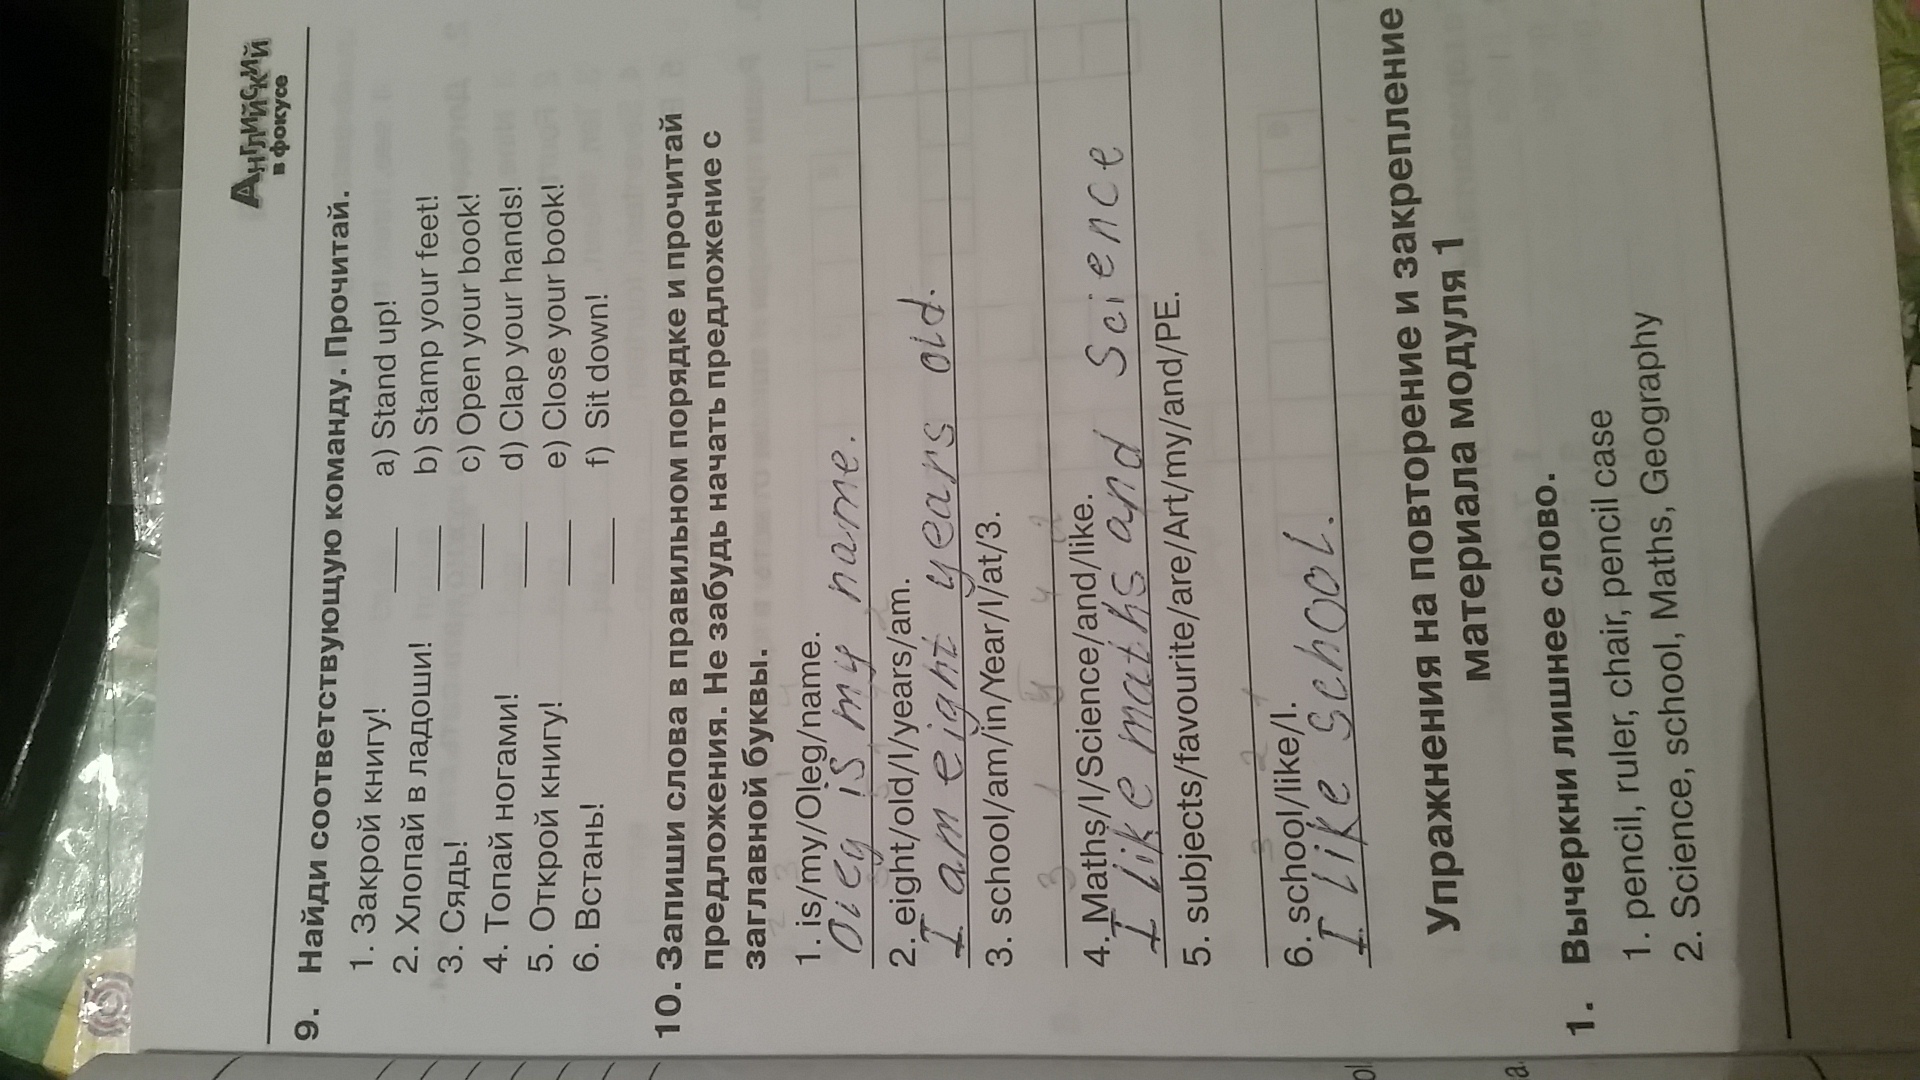 Английский
в фокусе
9. Найди соответствующую команду. Прочитай.
1. Закрой книгу! ____ a) Stand up!
2. Хлопай в ладоши! ____ b) Stamp your feet!
3. Сядь! ____ c) Open your book!
4. Топай ногами! ____ d) Clap your hands!
5. Открой книгу! ____ e) Close your book!
6. Встань! ____ f) Sit down!
10. Запиши слова в правильном порядке и прочитай
предложения. Не забудь начать предложение с
заглавной буквы.
1. is/my/Oleg/name.
Oleg is my name.
2. eight/old/I/years/am.
I am eight years old.
3. school/am/in/Year/I/at/3.
4. Maths/I/Science/and/like.
I like maths and Science
5. subjects/favourite/are/Art/my/and/PE.
6. school/like/I.
I like School.
Упражнения на повторение и закрепление
материала модуля 1
1. Вычеркни лишнее слово.
1. pencil, ruler, chair, pencil case
2. Science, school, Maths, Geography